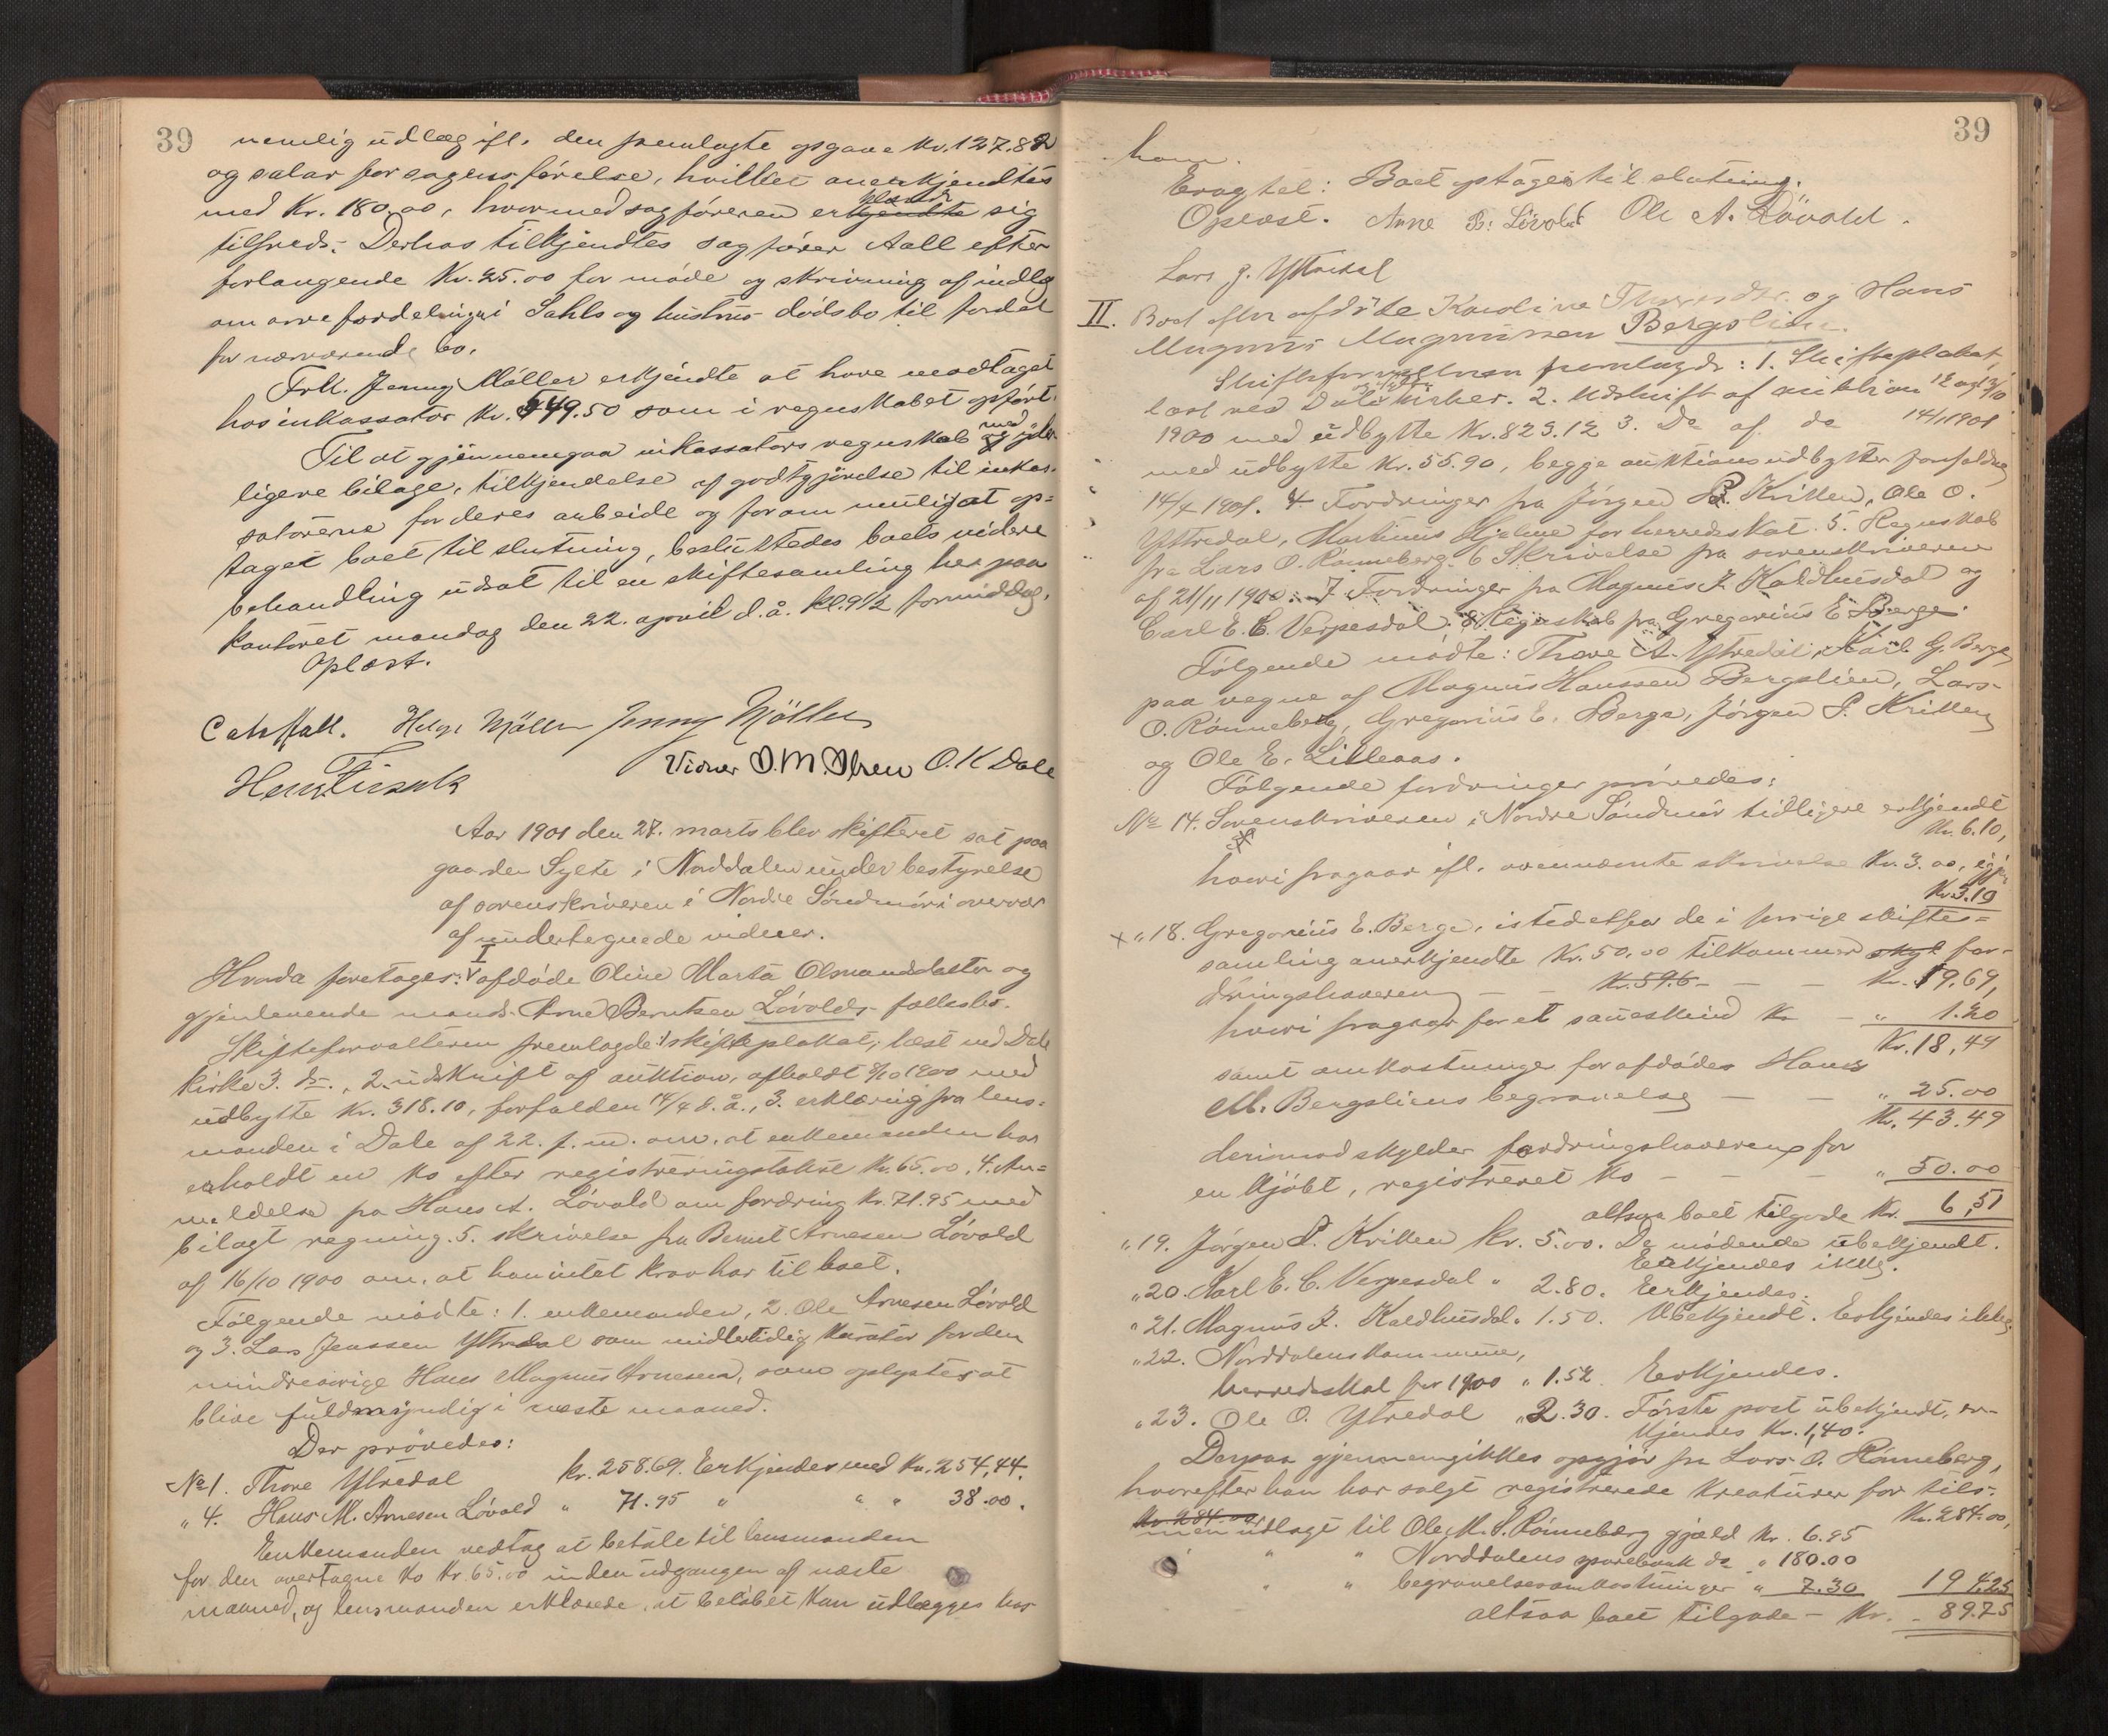 39
nemlig udlæg ifl. den fremlagte opgave Kr. 127.82
og salær for sagens førelse, hvilket anerkjendtes
med Kr. 180.00, hvormed sagføreren erklærede sig
tilfreds. Derhos tilkjendtes sagfører Aall efter
forlangende Kr. 25.00 for møde og skrivning af indlæg
om arvefordelingen i Sahls og hustrus dødsbo til fordel
for nærværende bo.
Frk. Jenny Møller erkjendte at have modtaget
hos inkassator Kr. 449.50 som i regnskabet opført.
Til at gjennemgaa inkassators regnskab med yder-
ligere bilage, tilkjendelse af godtgjørelse til inkas-
satorerne for deres arbeide og for om muligt at op=
taget boet til slutning, besluttedes boets videre
behandling udsat til en skiftesamling her paa
kontoret mandag den 22. april d. å. kl. 9½ formiddag.
Oplæst.
Helge Møller Jenny Møller
Vidner O. M. Olsen O. K Dale
Aar 1901 den 27. marts blev skifteret sat paa
gaarden Sylte i Norddalen under bestyrelse
af sorenskriveren i Nordre Søndmør i overvær
af undertegnede vidner.
I
Hvorda foretages: afdøde Oline Marta Olsmandsdatter og
gjenlevende mands Arne Berntsen Løvolds fællesbo.
Skifteforvalteren fremlagde: 1 skifteplakat, læst ved Dale
kirke 3. ds., 2. udskrift af auktion, afholdt 8/10 1900 med
udbytte Kr. 318.10, forfalden 14/4 d. å., 3. erklæring fra lens=
manden i Dale af 22. f. m. om, at enkemanden har
erholdt en ko efter registreringstakst Kr. 65.00. 4. An=
meldelse fra Hans A. Løvold om fordring Kr. 71.95 med
bilagt regning. 5. skrivelse fra Bernt Arnesen Løvold
af 16/10 1900 om, at han intet krav har til boet.
Følgende mødte: 1. enkemanden, 2. Ole Arnesen Løvold
og 3. Lars Jenssen Ytredal som midlertidig kurator for den
mindreaarige Hans Magnus Arnesen, som oplystes at
blive fuldmyndig i næste maaned.
Der prøvedes:
No 1. Thore Ytredal kr. 258.69. Erkjendes med Kr. 254,44.
" 4. Hans M. Arnesen Løvold " 71.95 " " " 38.00.
Enkemanden vedtog at betale til lensmanden
for den overtagne ko Kr. 65.00 inden udgangen af næste
maaned, og lensmanden erklærede, at beløbet kan udlægges hos
39
ham.
Eragtet: Boet optages til slutning.
Oplæst. Arne B. Løvold Ole A. Løvold.
Lars J. Ytredal
II. Boet efter afdøde Karoline og Hans
Magnus Magnussen Bergslien.
Skifteforvalteren fremlagde: 1. Skifteplakat,
læst ved Dale kirke. 2. Udskrift af auktion 12 og 13/10
1900 med udbytte Kr. 823.12 3. Do af do 14/1 1901
med udbytte Kr. 55.90, begge auktionsudbytter forfaldne
14/4 1901. 4. Fordringer fra Jørgen P. Krikken, Ole O.
Ytredal, Martinus Hjelme for herredskat. 5. Regnskab
fra Lars O. Rønneberg. 6 Skrivelse fra sorenskriveren
af 21/11 1900. 7 Fordringer fra Magnus J. Kaldhusdal og
Carl E. C. Verpesdal. 8 Regnskab fra Gregorius E. Berge.
Følgende mødte: Thore A. Ytredal, Karl G. Berge
paa vegne af Magnus Hanssen Bergslien, Lars
O. Rønneberg, Gregorius E. Berge, Jørgen P. Krikken
og Ole E. Lilleaas.
Følgende fordringer prøvedes:
No 14. Sorenskriveren i Nordre Søndmør tidligere erkjendt
Kr. 6.10,
hvori fragaar ifl. ovennævnte skrivelse Kr. 3.00,
Kr. 3.10
× " 18. Gregorius E. Berge, istedetfor de i forrige skiftes=
samling anerkjendte Kr. 50.00 tilkommer skyl for-
dringshaveren — — Kr. 59.6 — — Kr. 19.69,
hvori fragaar for et saueskind Kr — " 1.20
Kr. 18,49
samt omkostninger for afdødes Hans
M. Bergsliens begravelse — — " 25.00
Kr. 43.49
derimod skylder fordringshaveren for
en kjøbt, registreret ko — — — " 50.00
altsaa boet tilgode Kr. 6,51
" 19. Jørgen P. Krikken Kr. 5.00. De mødende ubekjendt.
Erkjendes ikke.
" 20. Karl E. C. Verpesdal " 2.80. Erkjendes.
" 21. Magnus J. Kaldhusdal " 1.50. Ubekjendt. Erkjendes ikke.
" 22. Norddalens kommune,
herredsskat for 1900 " 1.52 Erkjendes.
" 23. Ole O. Ytredal " 2.30. Første post ubekjendt, er-
kjendes Kr. 1,40.
Derpaa gjennemgikkes opgjør fra Lars O. Rønneberg,
hvorefter han har solgt registrerede kreaturer for tils.
Kr. 284.00 Kr. 284.00,
men udlagt til Ole M. S. Rønneberg gjæld Kr. 6.95
" " Norddalens sparebank do " 180.00
" " begravelsesomkostninger " 7.30 194.25
altsaa boet tilgode — Kr. - 89.75